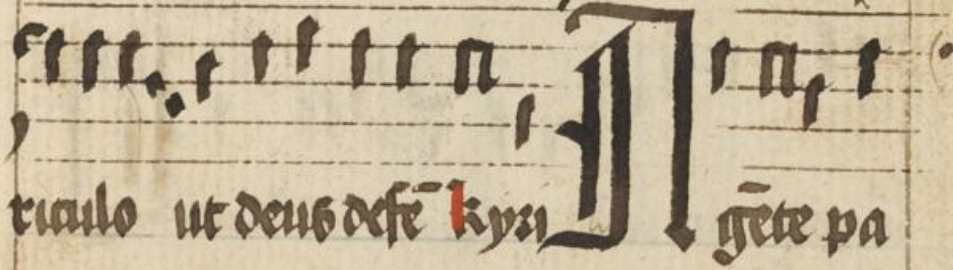 riculo ut deus defē kyri gēte pa